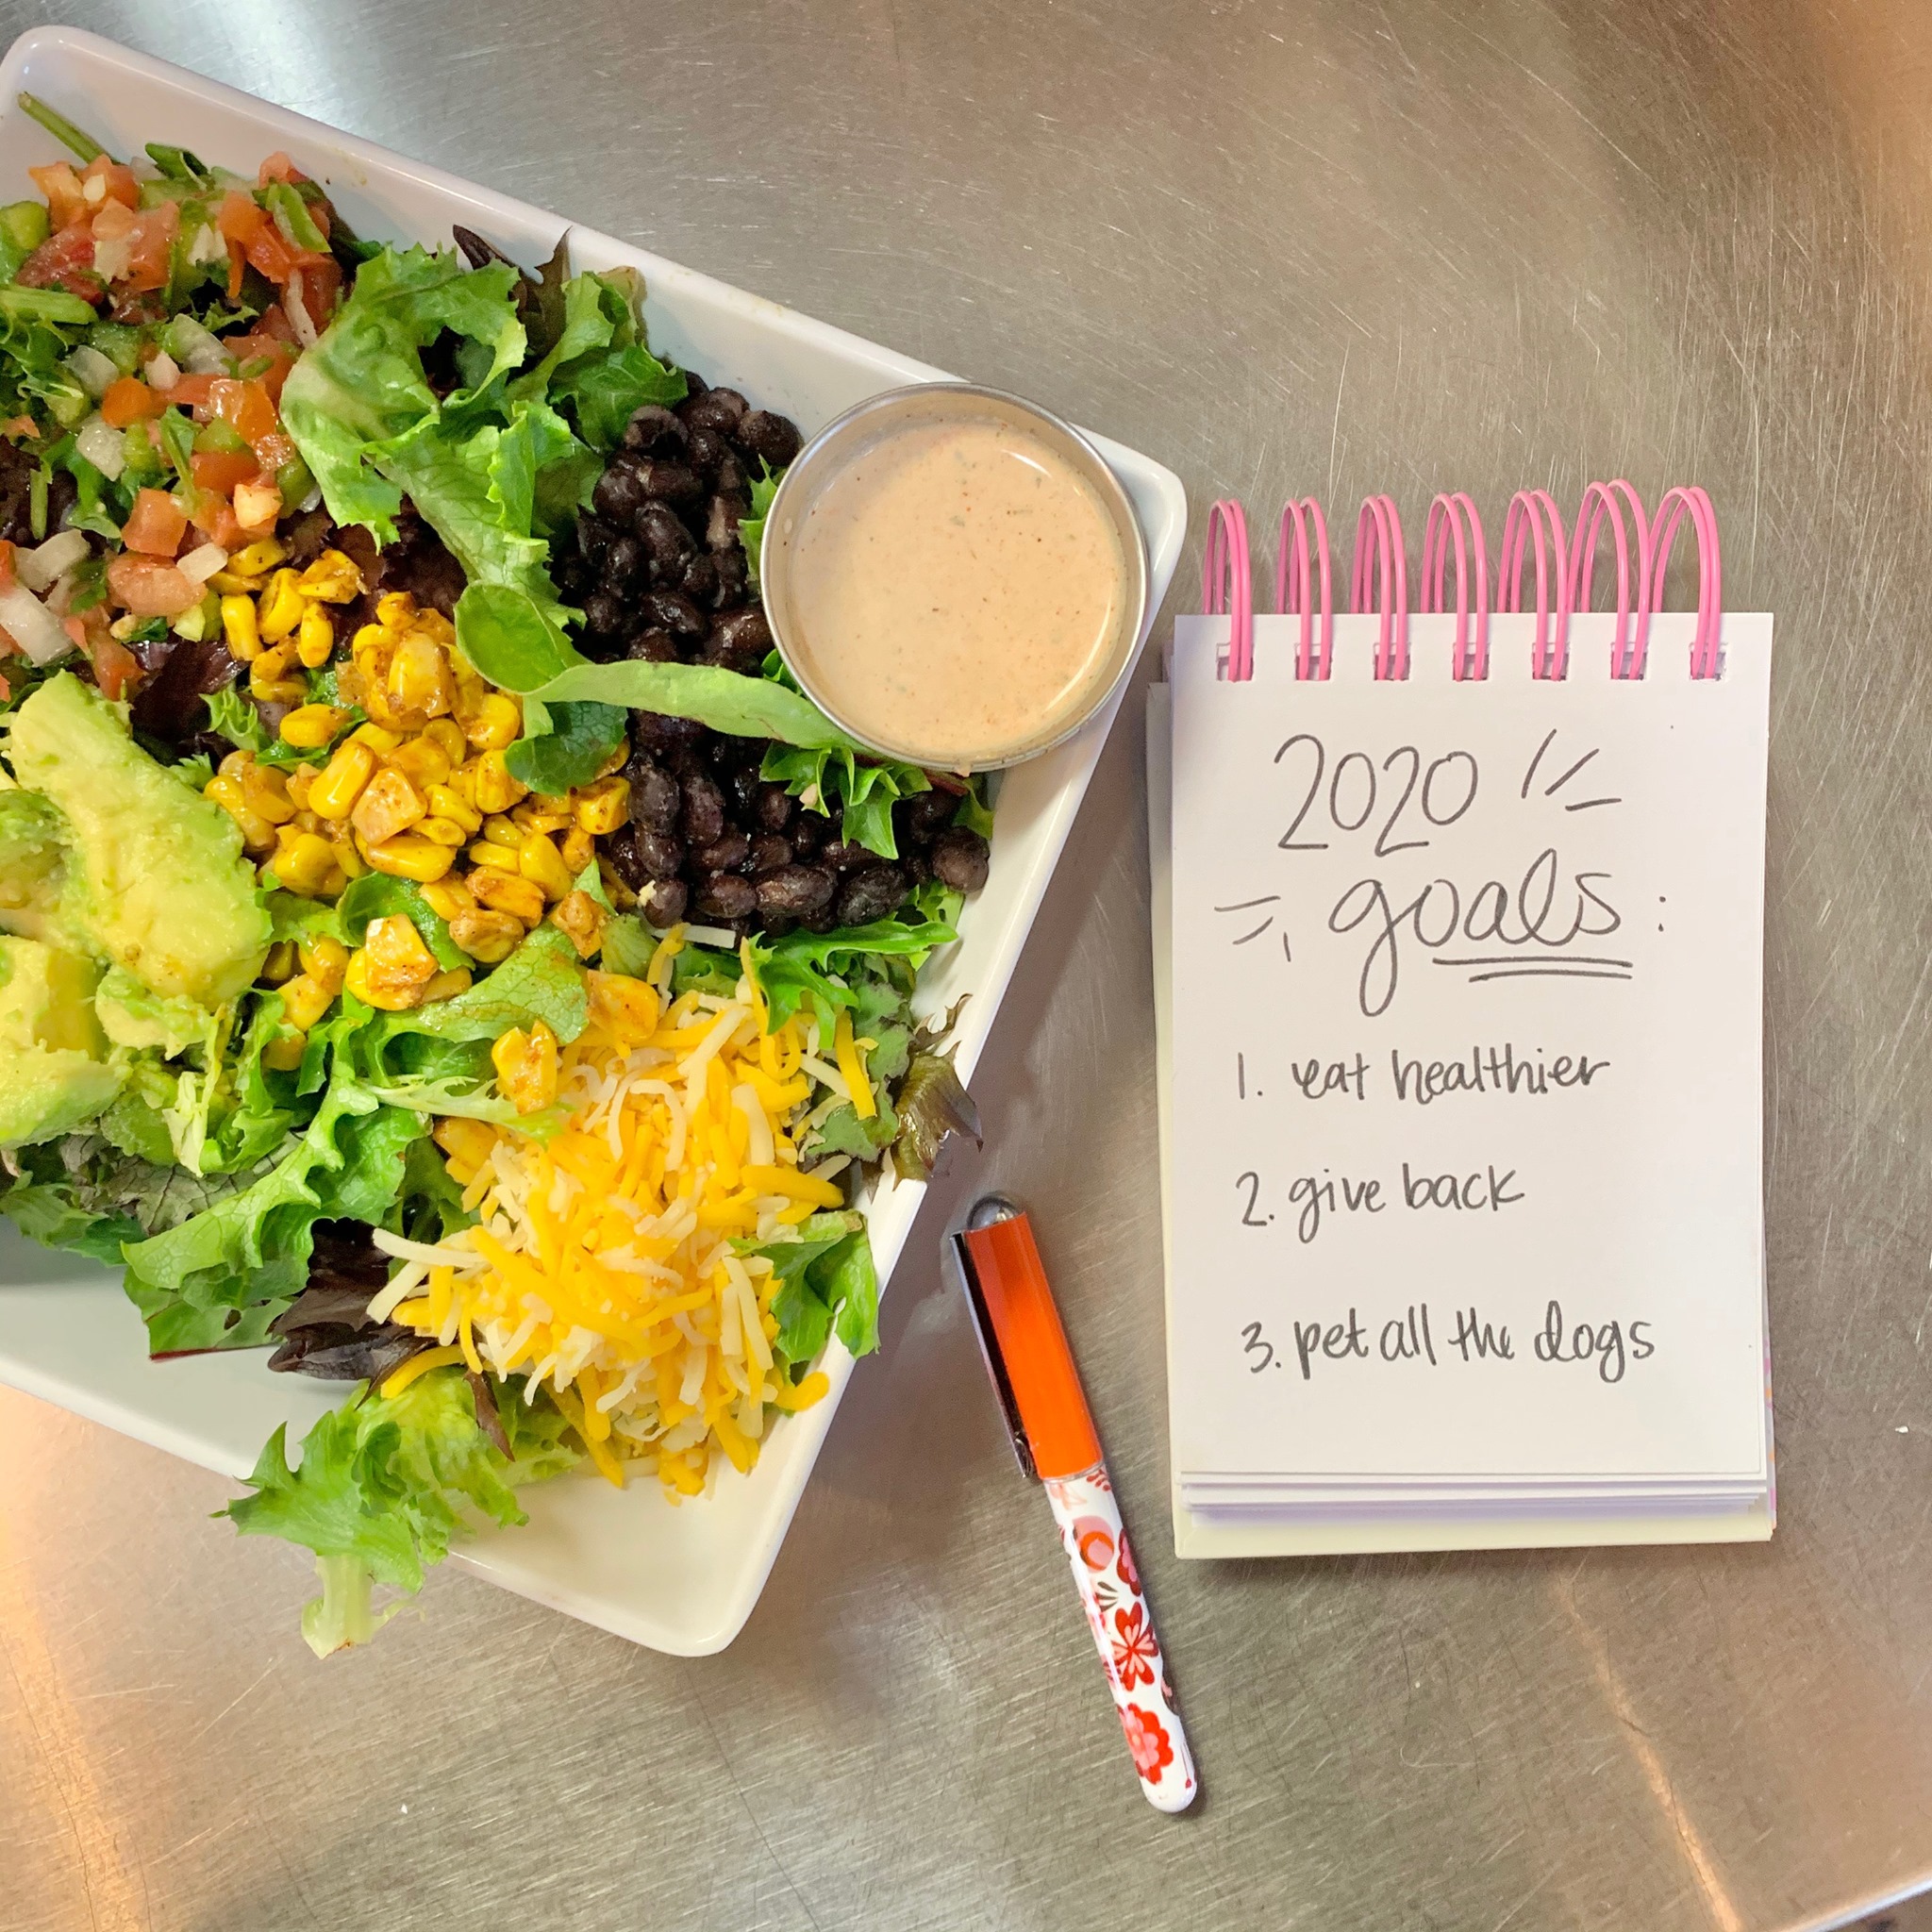 2020
goals:
1. eat healthier
2. give back
3. pet all the dogs